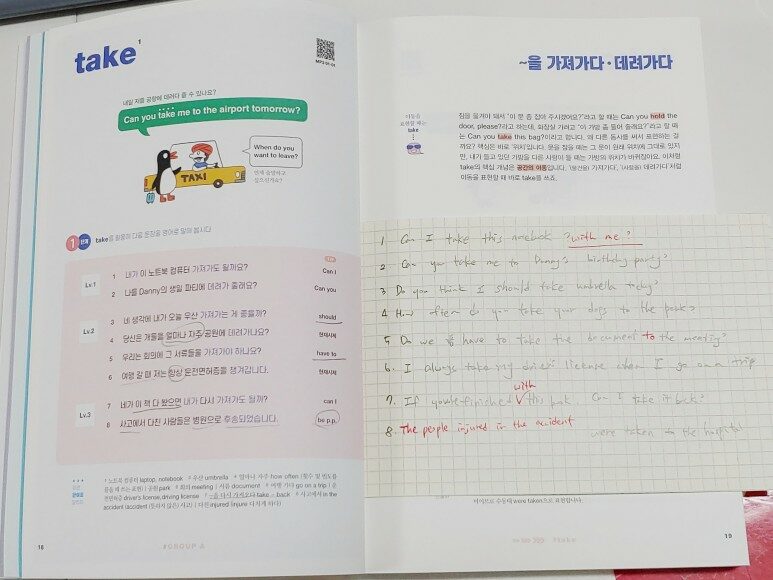 take 1
MP3 01-01
내일 저를 공항에 데려다 줄 수 있나요?
Can you take me to the airport tomorrow?
When do you
want to leave?
언제 출발하고
싶으신가요?
TAXI
1 단계 take를 활용해 다음 문장을 영어로 말해 봅시다.
TIP
Lv.1
1 내가 이 노트북 컴퓨터 가져가도 될까요? Can I
2 나를 Danny의 생일 파티에 데려가 줄래요? Can you
Lv.2
3 네 생각에 내가 오늘 우산 가져가는 게 좋을까? should
4 당신은 개들을 얼마나 자주 공원에 데려가나요? 현재시제
5 우리는 회의에 그 서류들을 가져가야 하나요? have to
6 여행 갈 때 저는 항상 운전면허증을 챙겨갑니다. 현재시제
Lv.3
7 네가 이 책 다 봤으면 내가 다시 가져가도 될까? can I
8 사고에서 다친 사람들은 병원으로 후송되었습니다. be p.p.
1 노트북 컴퓨터 laptop, notebook 3 우산 umbrella 4 얼마나 자주 how often (횟수 및 빈도를
물을 때 쓰는 표현) | 공원 park 5 회의 meeting | 서류 document 6 여행 가다 go on a trip | 운
전면허증 driver's license, driving license 7 ~을 다시 가져오다 take ~ back 8 사고에서 in the
accident (accident (뜻하지 않은) 사고) | 다친 injured (injure 다치게 하다)
16
#GROUP A
~을 가져가다·데려가다
이동을
표현할 때는
take
짐을 옮겨야 돼서 "이 문 좀 잡아 주시겠어요?"라고 할 때는 Can you hold the
door, please?라고 하는데, 화장실 가려고 "이 가방 좀 들어 줄래요?"라고 할 때
는 Can you take this bag?이라고 합니다. 왜 다른 동사를 써서 표현하는 걸
까요? 핵심은 바로 '위치'입니다. 문을 잡을 때는 그 문이 원래 위치에 그대로 있지
만, 내가 들고 있던 가방을 다른 사람이 들 때는 가방의 위치가 바뀌잖아요. 이처럼
take의 핵심 개념은 공간의 이동입니다. '(물건을) 가져가다', '(사람을) 데려가다'처럼
이동을 표현할 때 바로 take를 쓰죠.
1 Can I take this notebook ?with me?
2 Can you take me to Danny's birthday party?
3 Do you think I should take umbrella today?
4 How often do you take your dogs to the park?
5 Do we have to take the document to the meeting?
6. I always take my driver's license when I go on a trip
7. If you're finished with this book, Can I take it back?
8. The people injured in the accident were taken to the hospital
were taken으로 표현합니다.
19